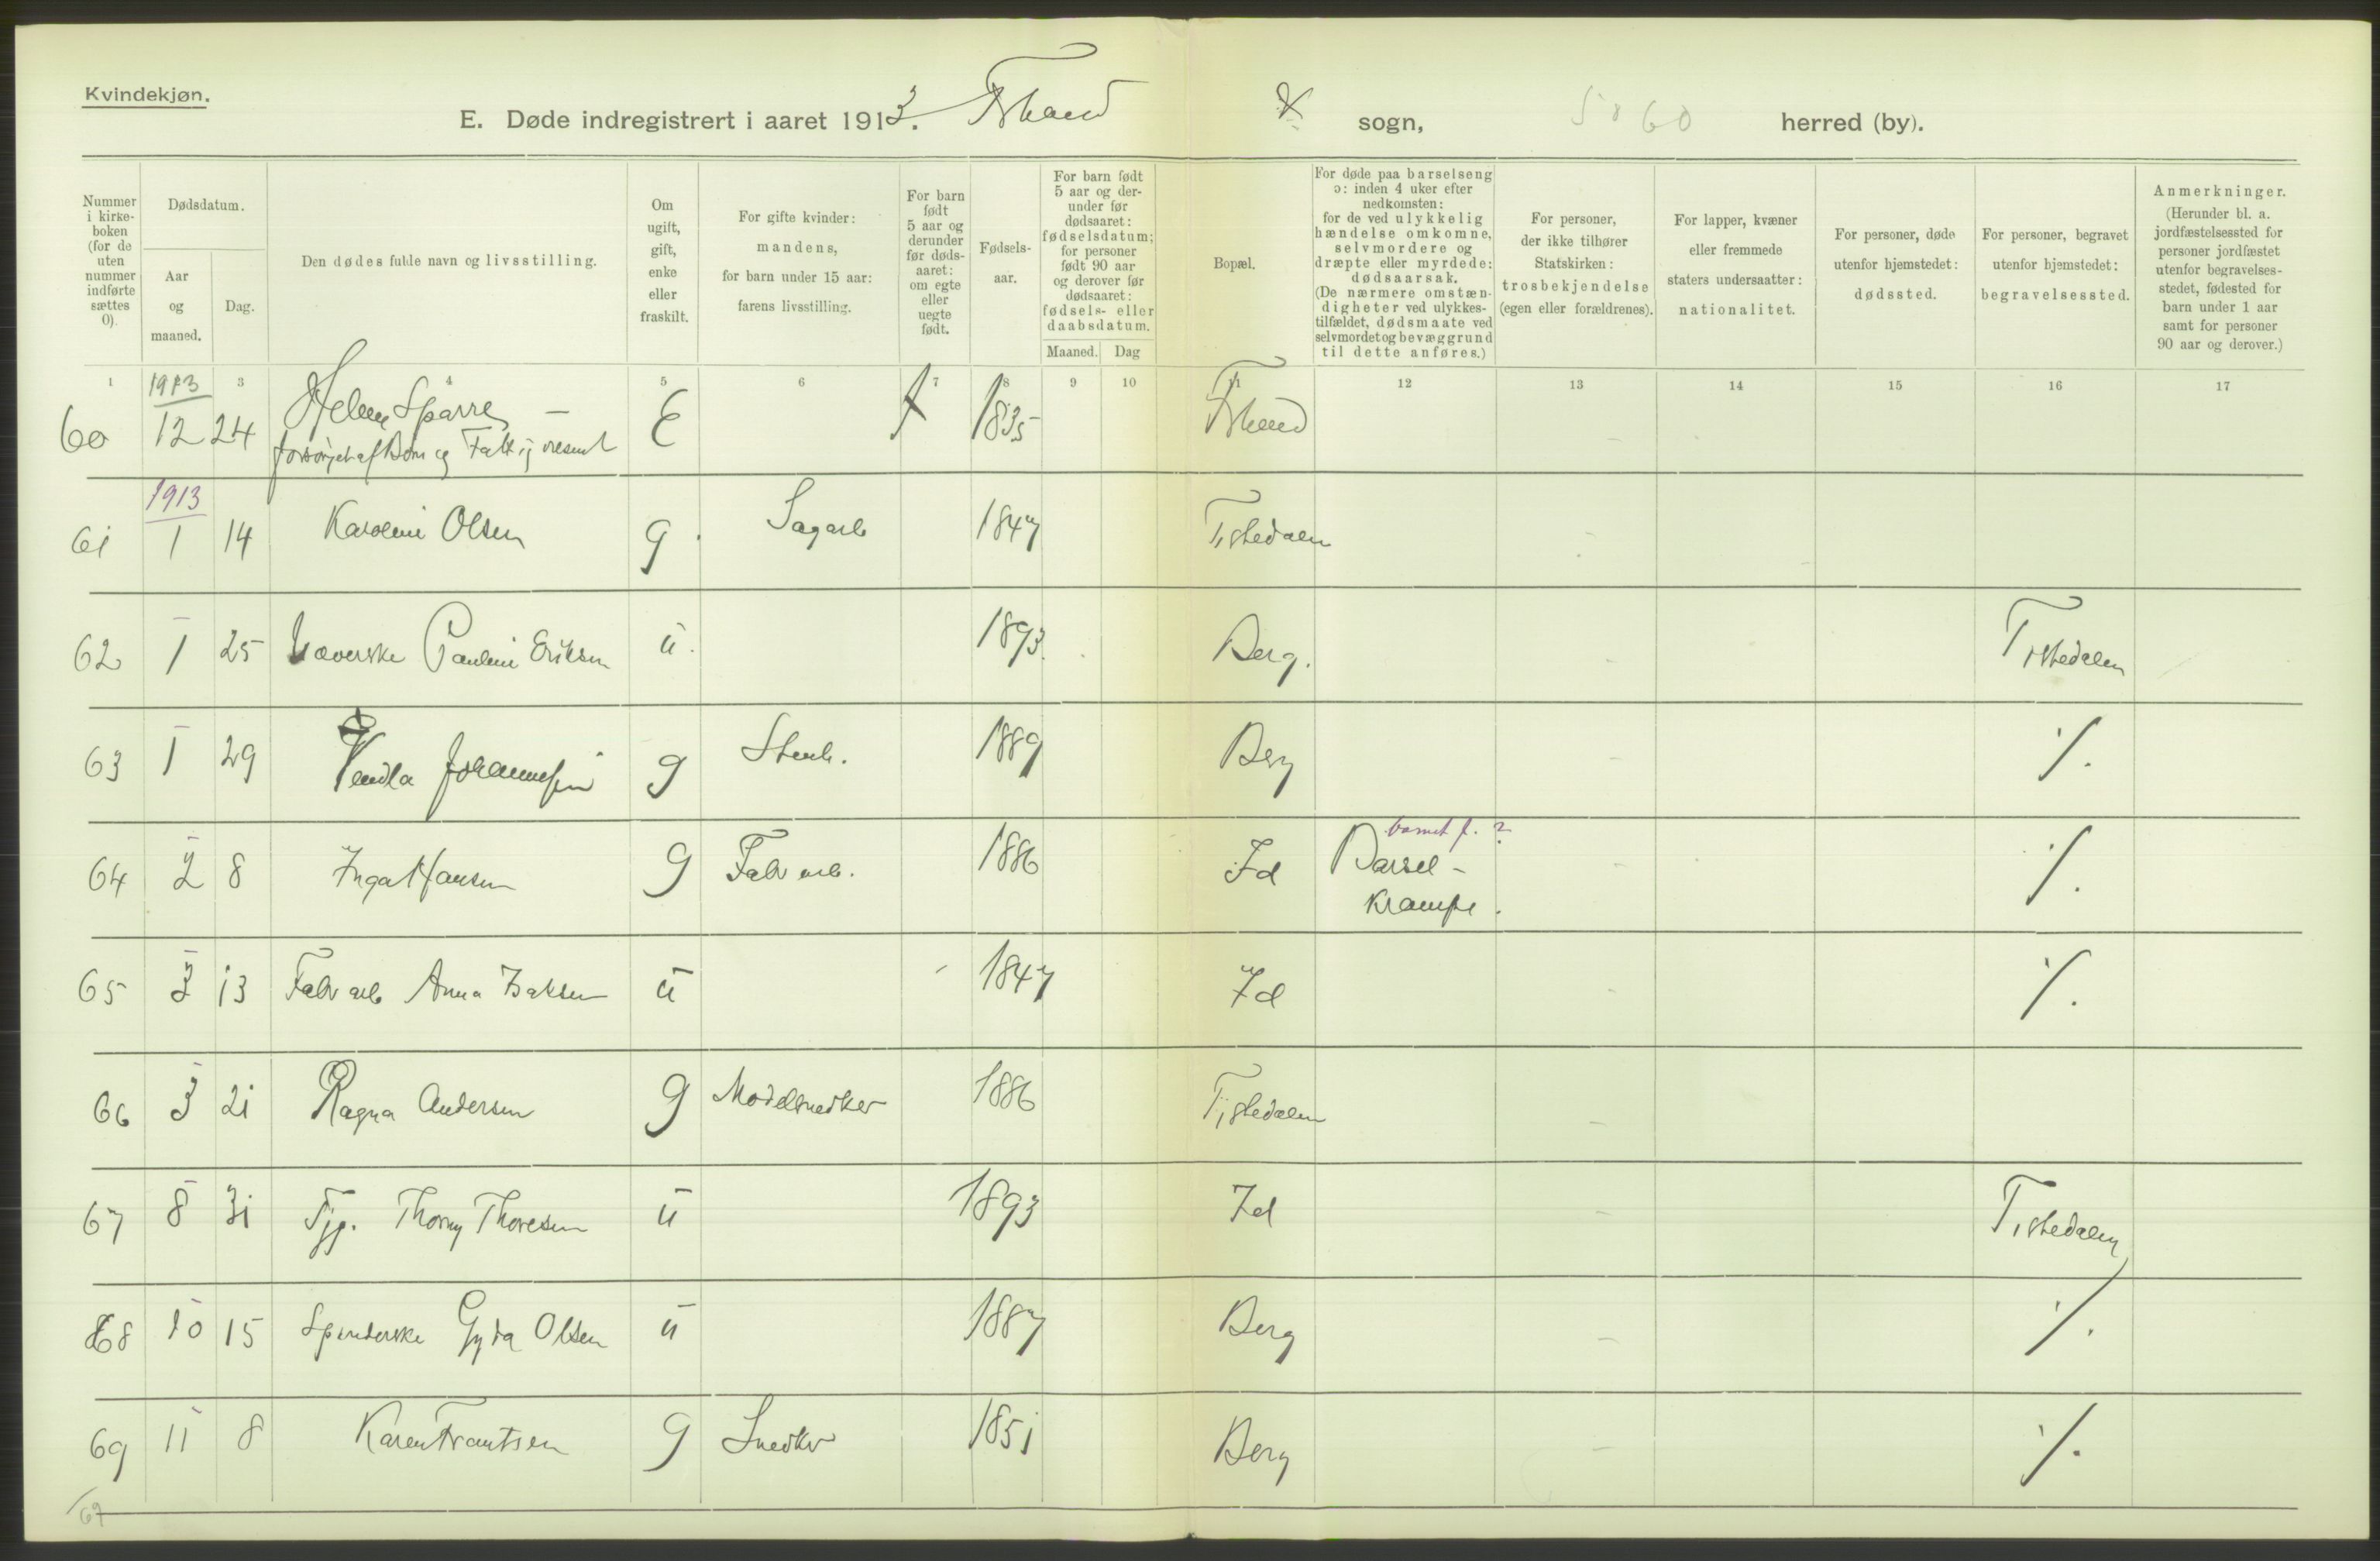 Kvindekjøn.
E. Døde indregistrert i aaret 1913. Fshald sogn, 5860 herred (by).
Nummer i kirke-boken (for de uten nummer indførte sættes 0).
Dødsdatum.
Aar og maaned.
Dag.
Den dødes fulde navn og livsstilling.
Om ugift, gift, enke eller fraskilt.
For gifte kvinder: mandens, for barn under 15 aar: farens livsstilling.
For barn født 5 aar og derunder før døds-aaret: om egte eller uegte født.
Fødsels-aar.
For barn født 5 aar og der-under før dødsaaret: fødselsdatum; for personer født 90 aar og derover før dødsaaret: fødsels- eller daabsdatum.
Maaned. Dag
Bopæl.
For døde paa barselseng ɔ: inden 4 uker efter nedkomsten: for de ved ulykkelig hændelse omkomne, selvmordere og dræpte eller myrdede: dødsaarsak. (De nærmere omstæn-digheter ved ulykkes-tilfældet, dødsmaate ved selvmordet og bevæggrund til dette anføres.)
For personer, der ikke tilhører Statskirken: trosbekjendelse (egen eller forældrenes).
For lapper, kvæner eller fremmede staters undersaatter: nationalitet.
For personer, døde utenfor hjemstedet: dødssted.
For personer, begravet utenfor hjemstedet: begravelsessted.
Anmerkninger. (Herunder bl. a. jordfæstelsessted for personer jordfæstet utenfor begravelses-stedet, fødested for barn under 1 aar samt for personer 90 aar og derover.)
1 3 4 5 6 7 8 9 10 11 12 13 14 15 16 17
60 1913 12 24 Helene Sparre – E 1835 Fshald
forsørget af Børn og Fattigvesenet
61 1913 1 14 Karoline Olsen g. Sagarb 1847 Tistedalen
62 1 25 Væverske Pauline Eriksen u. 1893. Berg. Tistedalen
63 1 29 Vendla Johannesen g Stenh. 1889 Berg ·/.
64 2 8 Inga Hansen g Fabr arb. 1886 Id Barsel- barnet f. ? ·/.
krampe.
65 3 13 Fabr arb Anna Isaksen u 1847 Id ·/.
66 3 21 Ragna Andersen g Modelsnedker 1886 Tistedalen
67 8 31 Tjp. Thorny Thoresen u 1893 Id Tistedalen
68 10 15 Spinderske Gyda Olsen u 1887 Berg ·/.
69 11 8 Karen Frantsen g Snedker 1851 Berg ·/.
69